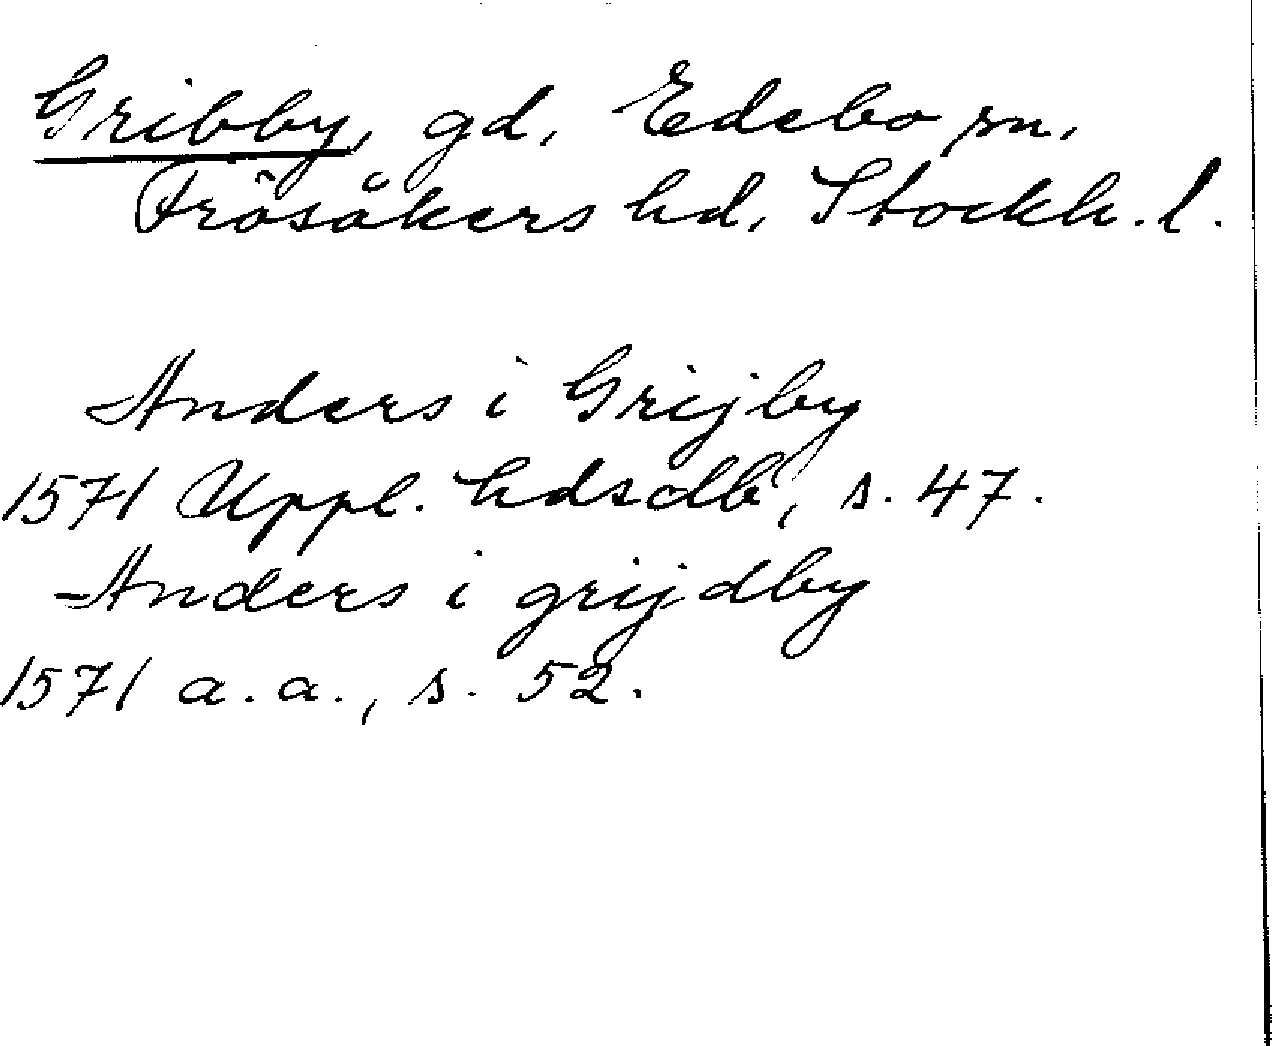 Gribby, gd, Edebo sn,
Frösåkers hd, Stockh. l.
Anders i Grijby
1571 Uppl. hdsdb, s. 47.
Anders i grijdby
1571 a.a., s. 52.